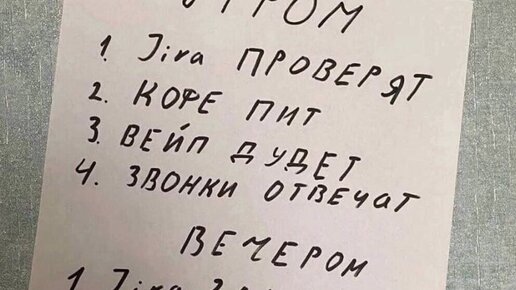 УТРОМ
1. Jira ПРОВЕРЯТ
2. КОФЕ ПИТ
3. ВЕЙП ДУДЕТ
4. ЗВОНКИ ОТВЕЧАТ
ВЕЧЕРОМ
1. Jira